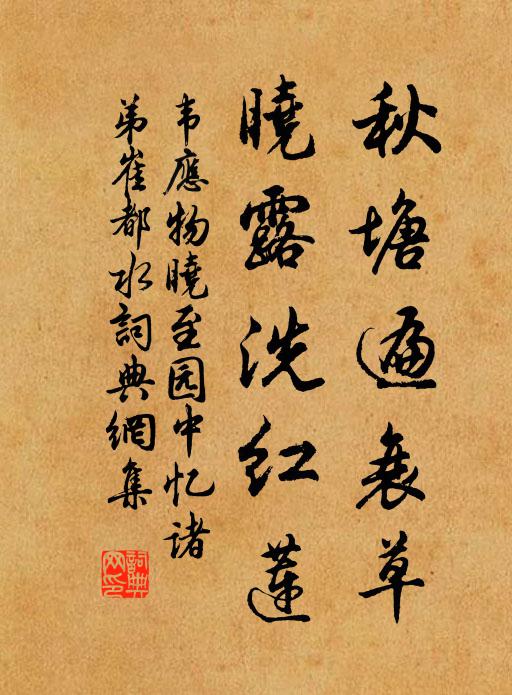 秋塘遍衰草
曉露洗红蓮
韦應物曉至园中忆诸
弟崔都水詞典網集
詞典网印